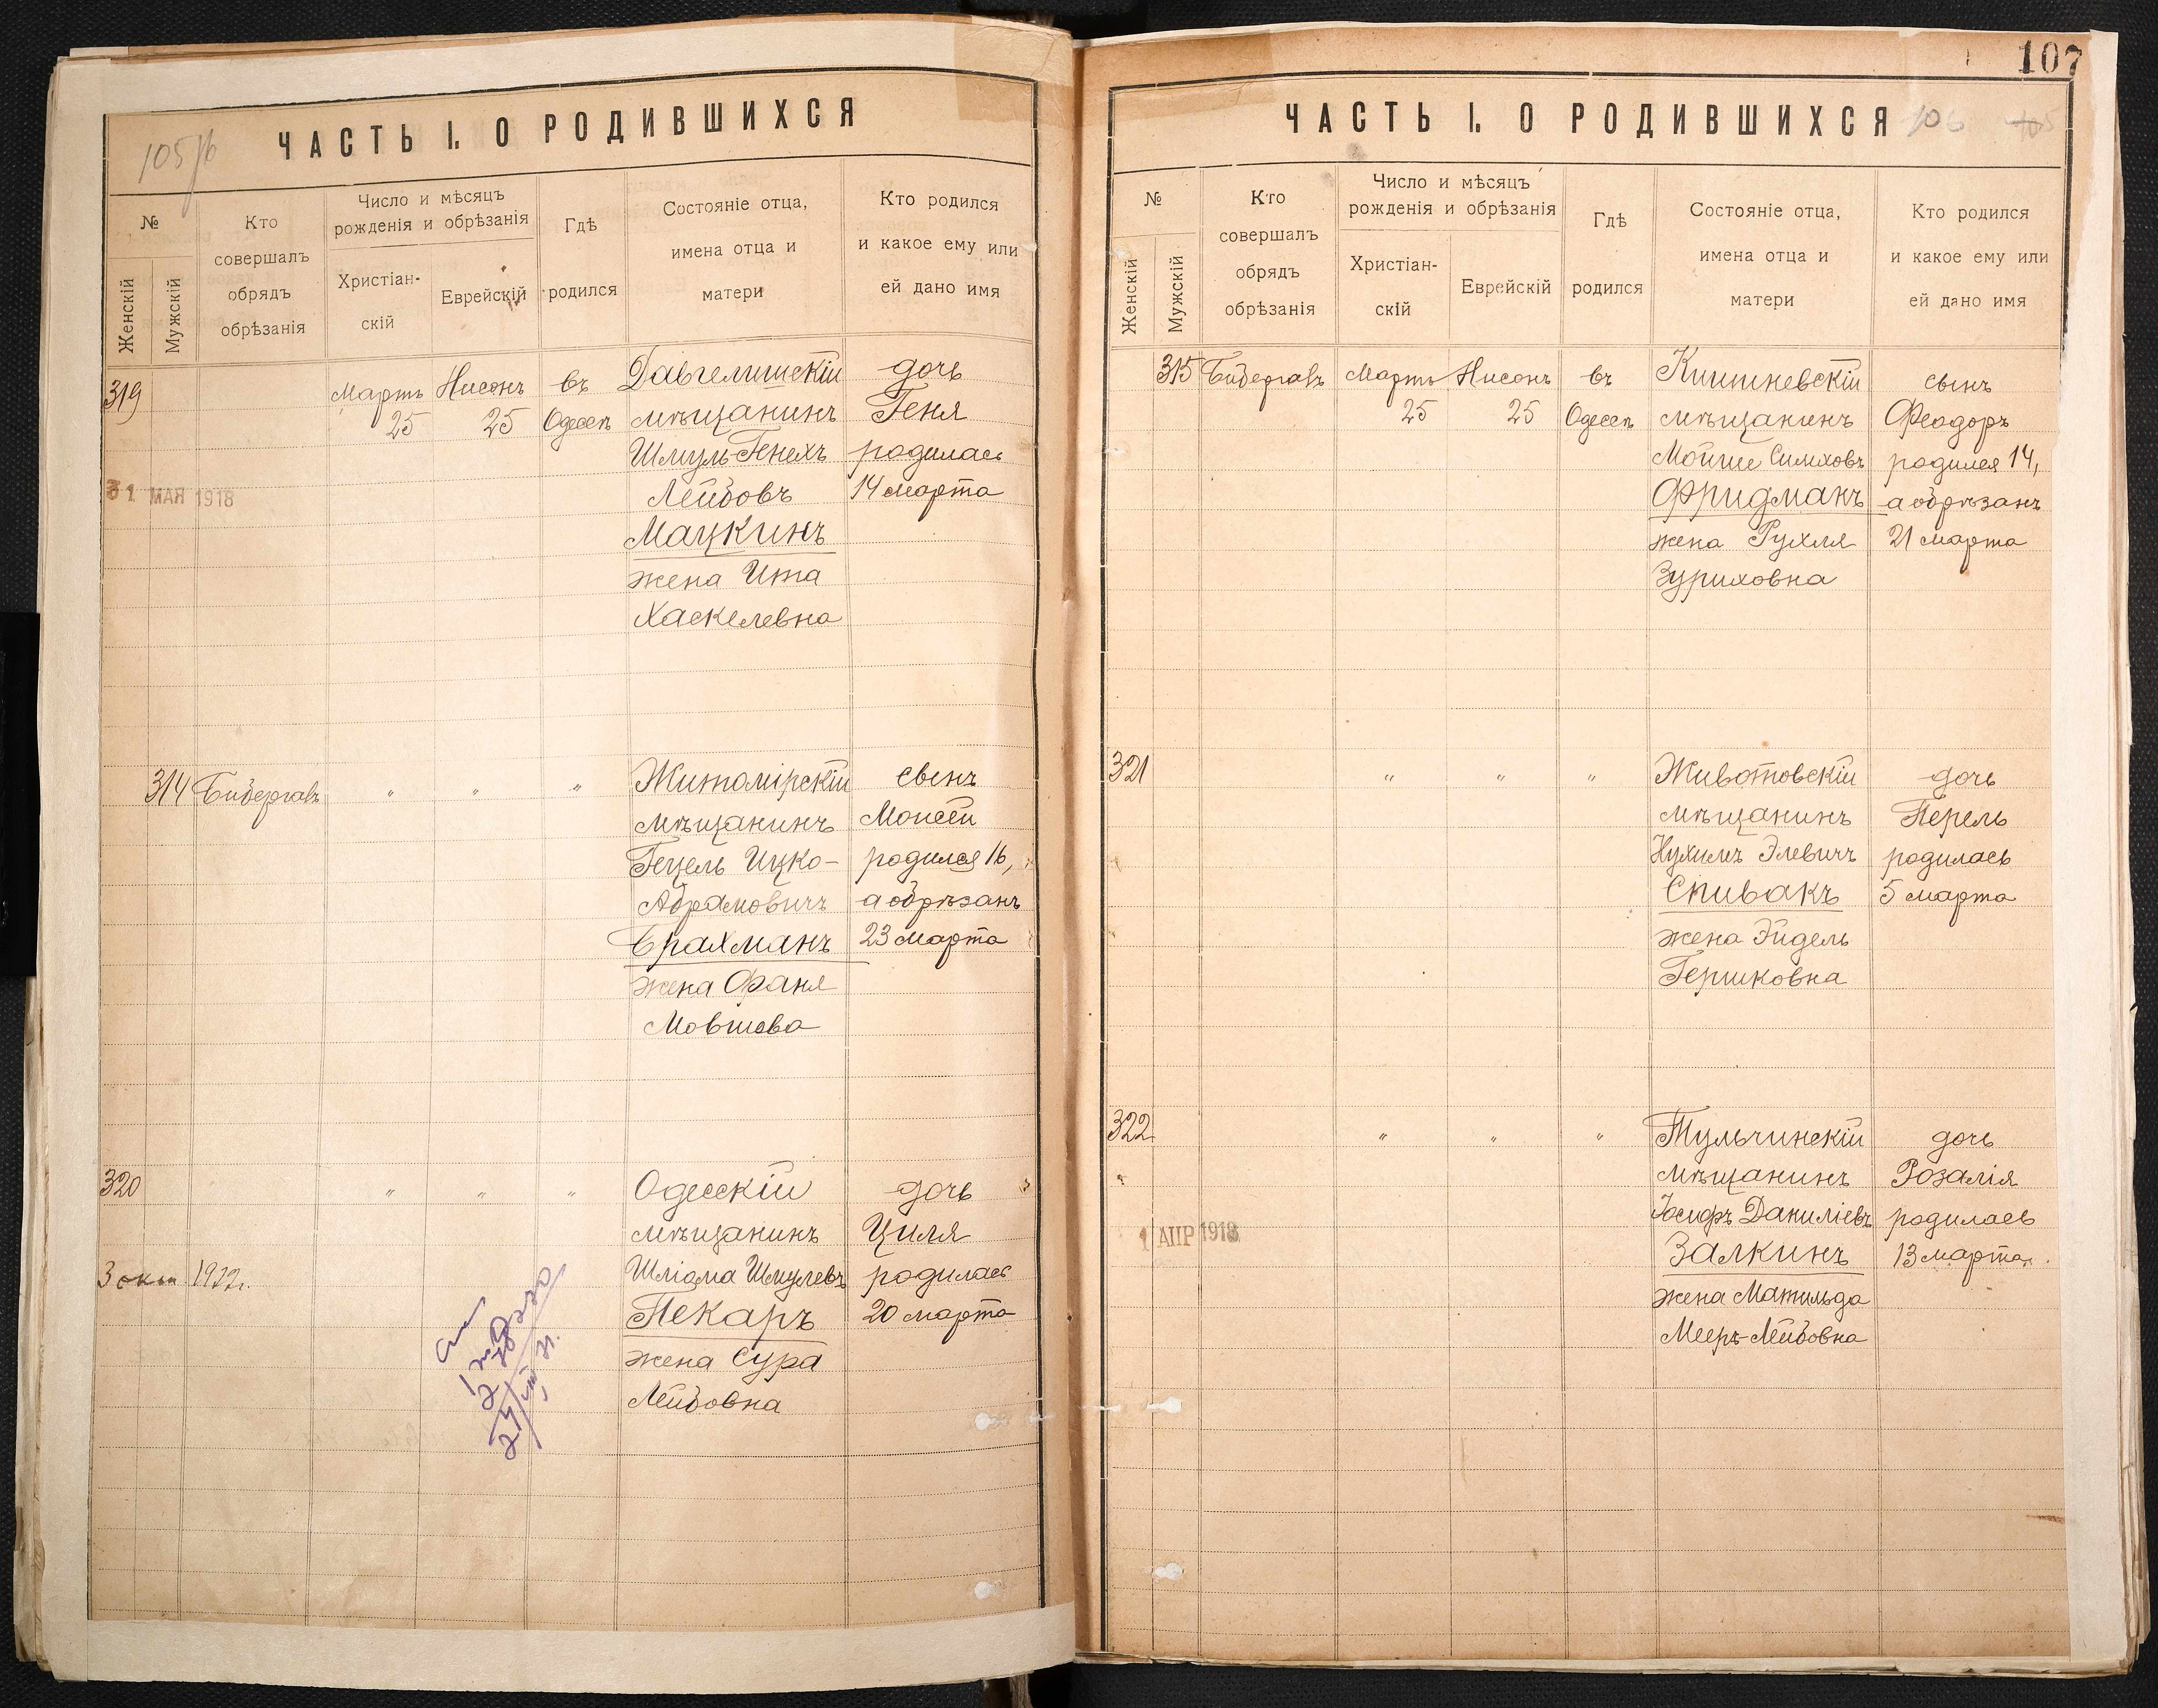 105/б
ЧАСТЬ I. О РОДИВШИХСЯ
№
Женскій
Мужскій
Кто
совершалъ
обрядъ
обрѣзанія
Число и мѣсяцъ
рожденія и обрѣзанія
Христіан-
скій
Еврейскій
Гдѣ
родился
Состояніе отца,
имена отца и
матери
Кто родился
и какое ему или
ей дано имя
319
Мартъ
25
Нисонъ
25
въ
Одессѣ
Давгелишскій
мѣщанинъ
Шмуль-Генехъ
Лейбовъ
Мацкинъ
жена Ита
Хаскелевна
дочь
Геня
родилась
14 марта
31 МАЯ 1918
314
Бибергалъ
"
"
"
Житомірскій
мѣщанинъ
Гецель Ицко-
Абрамовичъ
Брахманъ
жена Фаня
Мовшева
сынъ
Моисей
родился 16,
а обрѣзанъ
23 марта
320
"
"
"
Одесскій
мѣщанинъ
Шліома Шмулевъ
Пекаръ
жена Сура
Лейбовна
дочь
Циля
родилась
20 марта
3 окт 1922г.
107
ЧАСТЬ I. О РОДИВШИХСЯ
106
105
№
Женскій
Мужскій
Кто
совершалъ
обрядъ
обрѣзанія
Число и мѣсяцъ
рожденія и обрѣзанія
Христіан-
скій
Еврейскій
Гдѣ
родился
Состояніе отца,
имена отца и
матери
Кто родился
и какое ему или
ей дано имя
315
Бибергалъ
Мартъ
25
Нисонъ
25
въ
Одессѣ
Кишиневскій
мѣщанинъ
Мойше Симховъ
Фридманъ
жена Рухля
Зуриховна
сынъ
Феодоръ
родился 14,
а обрѣзанъ
21 марта
321
"
"
"
Животовскій
мѣщанинъ
Нухимъ Элевичъ
Спивакъ
жена Эйдель
Гершковна
дочь
Перель
родилась
5 марта
322
"
"
"
Тульчинскій
мѣщанинъ
Іосифъ Даниліевъ
Залкинъ
жена Матильда
Мееръ-Лейбовна
дочь
Розалія
родилась
13 марта
1 АПР 1918